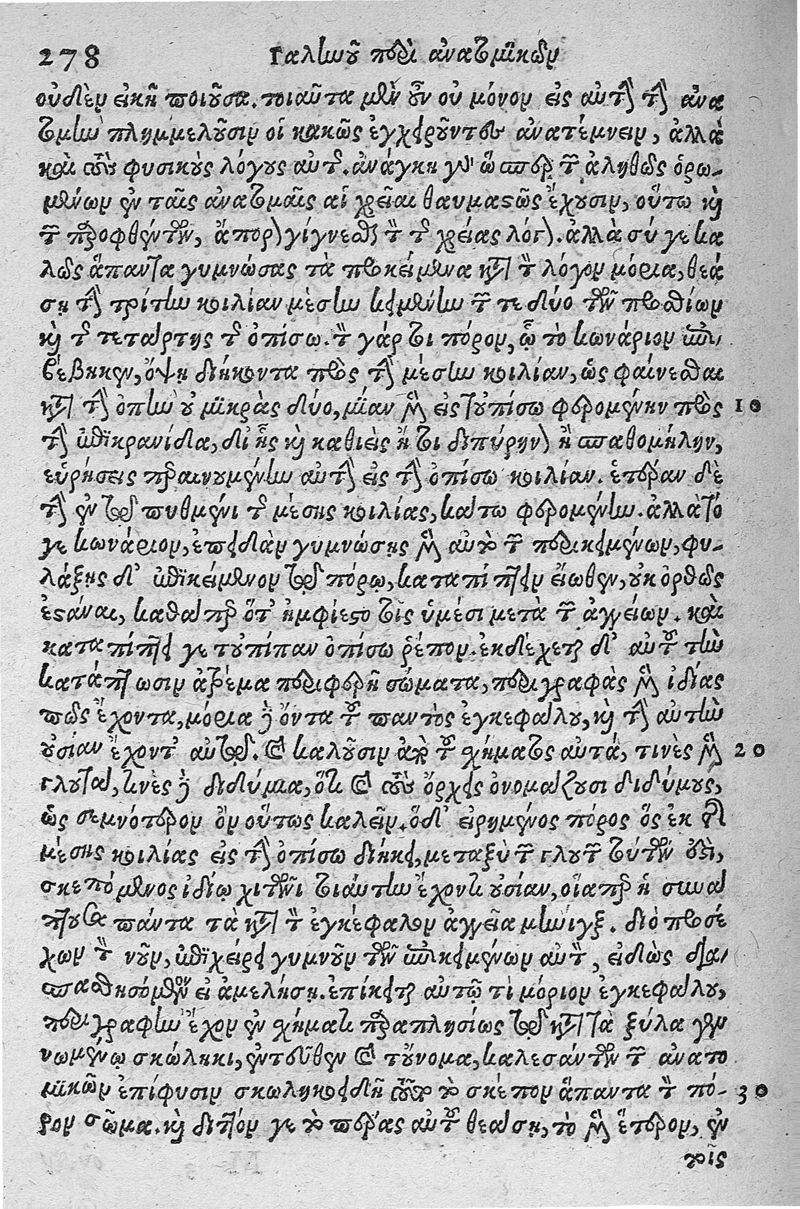 278 Γαλίωοῦ περὶ ἀνατομικῶν
οὐδὲν εἰκῆ ποιοῦσα. τοιαῦτα μὲν οὖν οὐ μόνον εἰς αὐτὴν τὴν ἀνα
τομὴν πλημμελοῦσιν οἱ κακῶς ἐγχειροῦντες ἀνατέμνειν, ἀλλὰ
καὶ τοὺς φυσικοὺς λόγους αὐτῆς. ἀνάγκη γὰρ ὥσπερ τῶν ἀληθῶς ὁρω-
μένων ἐν ταῖς ἀνατομαῖς αἱ χρεῖαι θαυμαστῶς ἔχουσιν, οὕτω καὶ
τῶν προσφθέντων, ἄπορον γίγνεσθαι τὸν τῆς χρείας λόγον. ἀλλὰ σύ γε κα
λῶς ἅπαντα γυμνώσας τὰ προκείμενα κατὰ τὸν λόγον μόρια, θεά
σῃ τὴν τρίτην κοιλίαν μέσην κειμένην τῶν τε δύο τῶν προσθίων
καὶ τῆς τετάρτης τῆς ὀπίσω. τὸν γάρ τοι πόρον, ᾧ τὸ κωνάριον ἐπι-
βέβηκεν, ὄψῃ διήκοντα πρὸς τὴν μέσην κοιλίαν, ὡς φαίνεσθαι
κατὰ τὴν ὀπὴν οὐ μικρὰς δύο, μίαν μὲν εἰς τοὐπίσω φερομένην πρὸς 10
τὴν ἐπικρανίδα, δι' ἧς καὶ καθιεὶς ἤτοι διπύρηνον ἢ σπαθομήλην,
εὑρήσεις περαινουμένην αὐτὴν εἰς τὴν ὀπίσω κοιλίαν. ἑτέραν δὲ
τὴν ἐν τῷ πυθμένι τῆς μέσης κοιλίας, κάτω φερομένην. ἀλλὰ τό
γε κωνάριον, ἐπειδὰν γυμνώσῃς μὲν αὐτὸ τῶν περικειμένων, φυ-
λάξῃς δ' ἐπικείμενον τῷ πόρῳ, καταπίπτειν εἴωθεν, οὐκ ὀρθῶς
ἑστάναι, καθάπερ ὅτ' ἠμφίεστο τοῖς ὑμέσι μετὰ τῶν ἀγγείων. καὶ
καταπίπτει γε τοὐπίπαν ὀπίσω ῥέπον. ἐκδέχεται δ' αὐτοῦ τὴν
κατάπτωσιν ἀτρέμα περιφερῆ σώματα, περιγραφὰς μὲν ἰδίας
πως ἔχοντα, μόρια δὲ ὄντα τοῦ παντὸς ἐγκεφάλου, καὶ τὴν αὐτὴν
οὐσίαν ἔχοντ' αὐτῷ. καὶ καλοῦσιν ἀπὸ τοῦ σχήματος αὐτά, τινὲς μὲν 20
γλουτά, τινὲς δὲ διδύμια, ὅτι καὶ τοὺς ὄρχεις ὀνομάζουσι διδύμους,
ὡς σεμνότερον ὂν οὕτως καλεῖν. ὁ δ' εἰρημένος πόρος ὃς ἐκ τῆς
μέσης κοιλίας εἰς τὴν ὀπίσω διήκει, μεταξὺ τῶν γλουτῶν τούτων ἐστὶ,
σκεπόμενος ἰδίῳ χιτῶνι τοιαύτην ἔχοντι οὐσίαν, οἵαπερ ἡ συνάπ
τουσα πάντα τὰ κατὰ τὸν ἐγκέφαλον ἀγγεῖα μῆνιγξ. διὸ προσέ
χων τὸν νοῦν, ἐπιχείρει γυμνοῦν τῶν ἐπικειμένων αὐτὸν, εἰδὼς δια-
σπασθησόμενον εἰ ἀμελήσῃ. ἐπίκειται αὐτῷ τὶ μόριον ἐγκεφάλου,
περιγραφὴν ἔχον ἐν σχήματι παραπλησίως τῷ κατὰ τὰ ξύλα γεν
νωμένῳ σκώληκι, ἐντεῦθεν καὶ τοὔνομα, καλεσάντων τῶν ἀνατο
μικῶν ἐπίφυσιν σκωληκοειδῆ τοῦτο τὸ σκέπον ἅπαντα τὸν πό- 30
ρον σῶμα. καὶ διττόν γε τὸ πέρας αὐτοῦ θεάσῃ, τὸ μὲν ἕτερον, ἐν
τοῖς